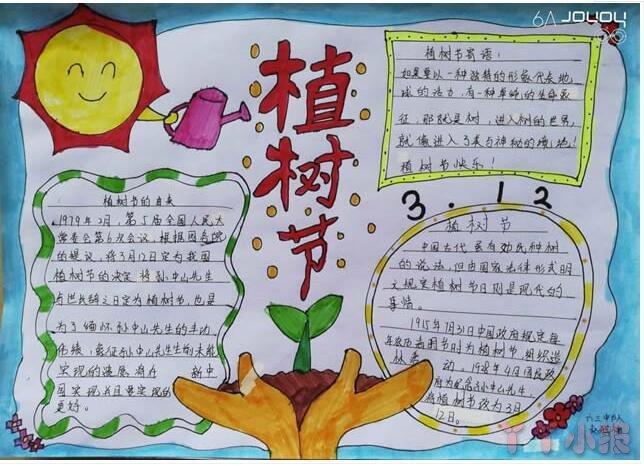 6A JOYOY
植树节
植树节寄语:
如果要以一种独特的形象代表地
球的活力,有一种单纯的生命象
征,那就是树,进入树的世界,
就像进入了柔与神秘的境地!
植树节快乐!
3.12
植树节的由来
1979年2月,第5届全国人民大
常委会第6次会议,根据国务院
的提议,将3月12日定为我国
植树节的决定 将孙中山先生
逝世日定为植树节,也是
为了缅怀孙中山先生的丰功
伟绩,象征孙中山先生生前未能
实现的遗愿将在 新中
国实现并且要实现的
更好。
植树节
中国古代就有劝民种树
的说法,但由国家法律形式明
文规定植树节日则是现代的
事情。
1915年7月31日中国政府规定每
年清明节时为植树节,
动,1928年4月国民政
府为纪念孙中山先生
将植树节改为3月
12日。
小报